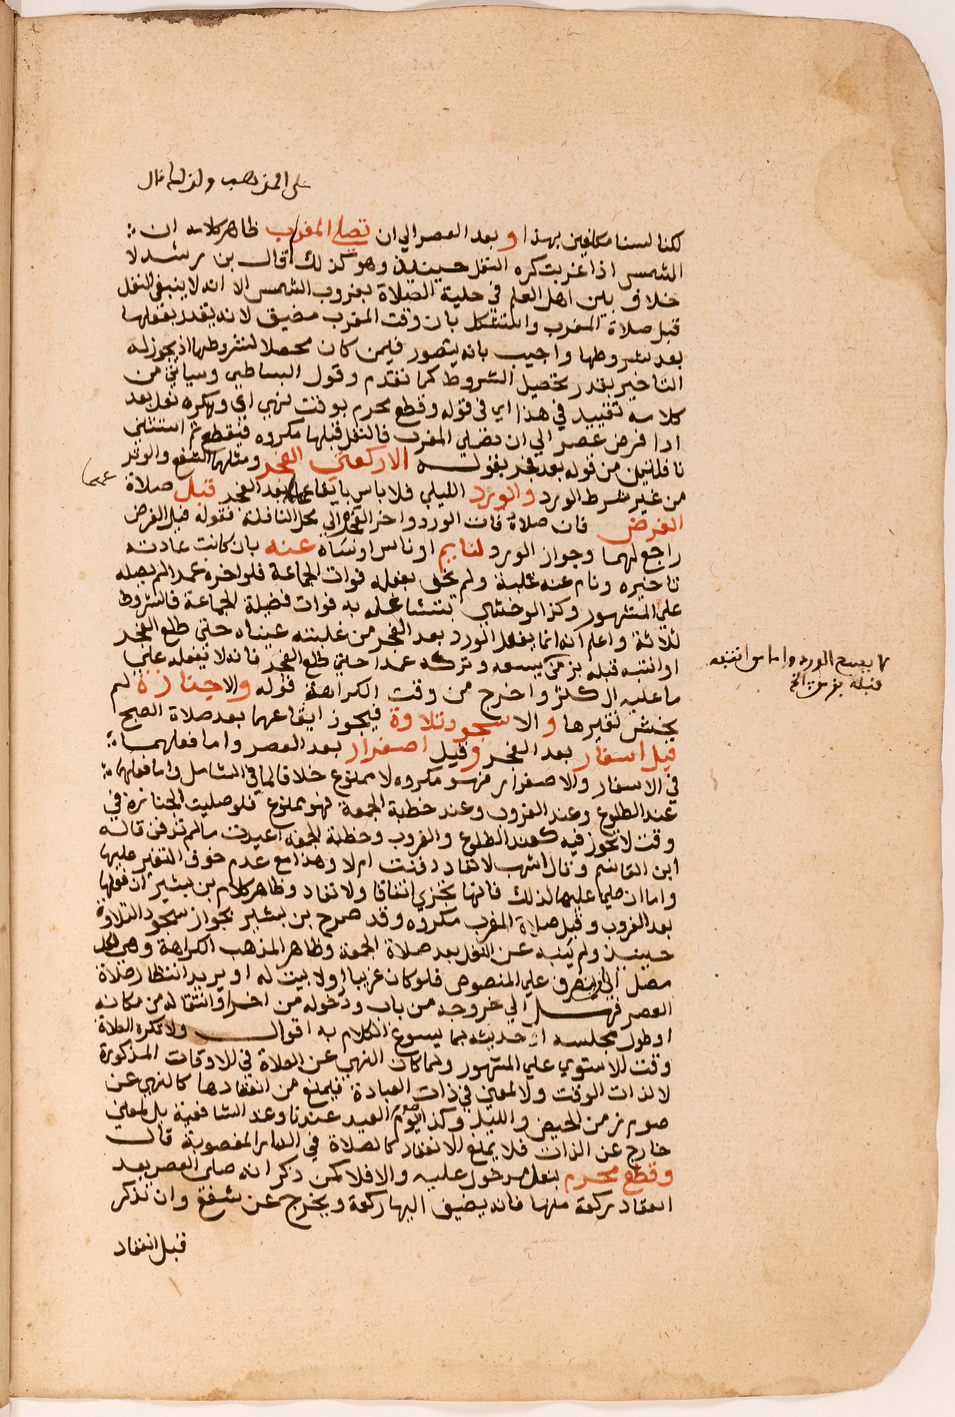 على المذهب ولذلك قال
لكنا لسنا مكلفين بهذا و بعد العصر الي ان تصلي المغرب ظاهر كلامه ان
الشمس اذا غربت كره النفل حينيذ وهو كذلك قال بن رشد لا
خلاف بين اهل العلم في حلية الصلاة بغروب الشمس الا انه لا ينبغي النفل
قبل صلاة المغرب واستشكل بان وقت المغرب مضيق لانه يقدر بفعلها
بعد شروطها واجيب بانه يتصور فيمن كان محصلا لشروطها اذ يجوز له
التاخير بقدر تحصيل الشروط كما تقدم وقول البساطي وسياتي من
كلامه تقييد في هذا اي في قوله وقطع محرم بوقت نهي اي ويكره نفل بعد
ادا فرض عصر الي ان تصلي المغرب فالنفل قبلها مكروه فيقطع ثم استثني
نافلتين من قوله بعد فجر بقوله الا ركعتي الفجر ومثلها الشفع والوتر
من غير شرط الورد والورد الليلي فلا باس بايقاعها بعد الفجر قبل صلاة
الفرض فان صلاة فات الورد واخر الفجر الي حل النافلة فقوله قبل الفرض
راجع لهما وجواز الورد لنايم او ناس او نساه عنه بان كانت عادته
تاخيره ونام عنه غلبة ولم يخف بفعله فوات الجماعة فلو اخره عمدا لم يصله
علي المشهور وكذا لو خشي بتشاغله به فوات فضيلة الجماعة فالشروط
ثلاثة واعلم انه انما يفعل الورد بعد الفجر من غلبته عيناه حتي طلع الفجر
او انتبه قبله بزمن يسعه وتركه عمدا حتي طلع الفجر فانه لا يفعله علي
ما يسع الورد واما من انتبه
قبله بزمن الخ
ما عليه ال كثر واخرج من وقت الكراهة قوله والا جنازة لم
يخش تغيرها و الا سجود تلاوة فيجوز ايقاعهما بعد صلاة الصبح
قبل اسفار بعد الفجر وقبل اصفرار بعد العصر واما فعلهما
في الاسفار والاصفرار فهو مكروه لا ممنوع خلافا لما في الشامل واما فعلهما
عند الطلوع وعند الغروب وعند خطبة الجمعة فهو ممنوع فلو صليت الجنازة في
وقت لا تجوز فيه كعند الطلوع والغروب وخطبة الجمعة اعيدت ما لم تدفن قاله
ابن القاسم وقال اشهب لا تعاد دفنت ام لا وهذا مع عدم خوف التغير عليها
واما ان صلي عليها لذلك فانها تجزي اتفاقا ولا تعاد وظاهر كلام بن بشير ان فعلها
بعد الغروب وقبل صلاة المغرب مكروه وقد صرح بن بشير بجواز سجود التلاوة
حينيذ ولم ينبه عن النفل بعد صلاة الجمعة وظاهر المذهب الكراهة وهي لكل
مصل الي ان ينصرف علي المنصوص فلو كان غريبا او لا بيت له او يريد انتظار صلاة
العصر فهل الي خروجه من باب ودخوله من اخر او انتقاله من مكانه
او طول مجلسه او حديثه بما يسوغ الكلام به اقوال ولا تكره الصلاة
وقت الاستوي علي المشهور ولما كان النهي عن الصلاة في الاوقات المذكورة
لا لذات الوقت ولا لمعني في ذات العبادة فيمنع من انعقادها كالنهي عن
صوم زمن الحيض والليل وكذا يوم العيد عندنا وعند الشافعية بل لمعني
خارج عن الذات فلا يمنع الانعقاد كالصلاة في الدار المغصوبة قال
وقطع محرم بنفل مدخول عليه والا فلا كمن ذكر انه صلي العصر بعد
انعقاد ركعة منها فانه يضيف اليها ركعة ويخرج عن شفع وان تذكر
قبل انعقاد